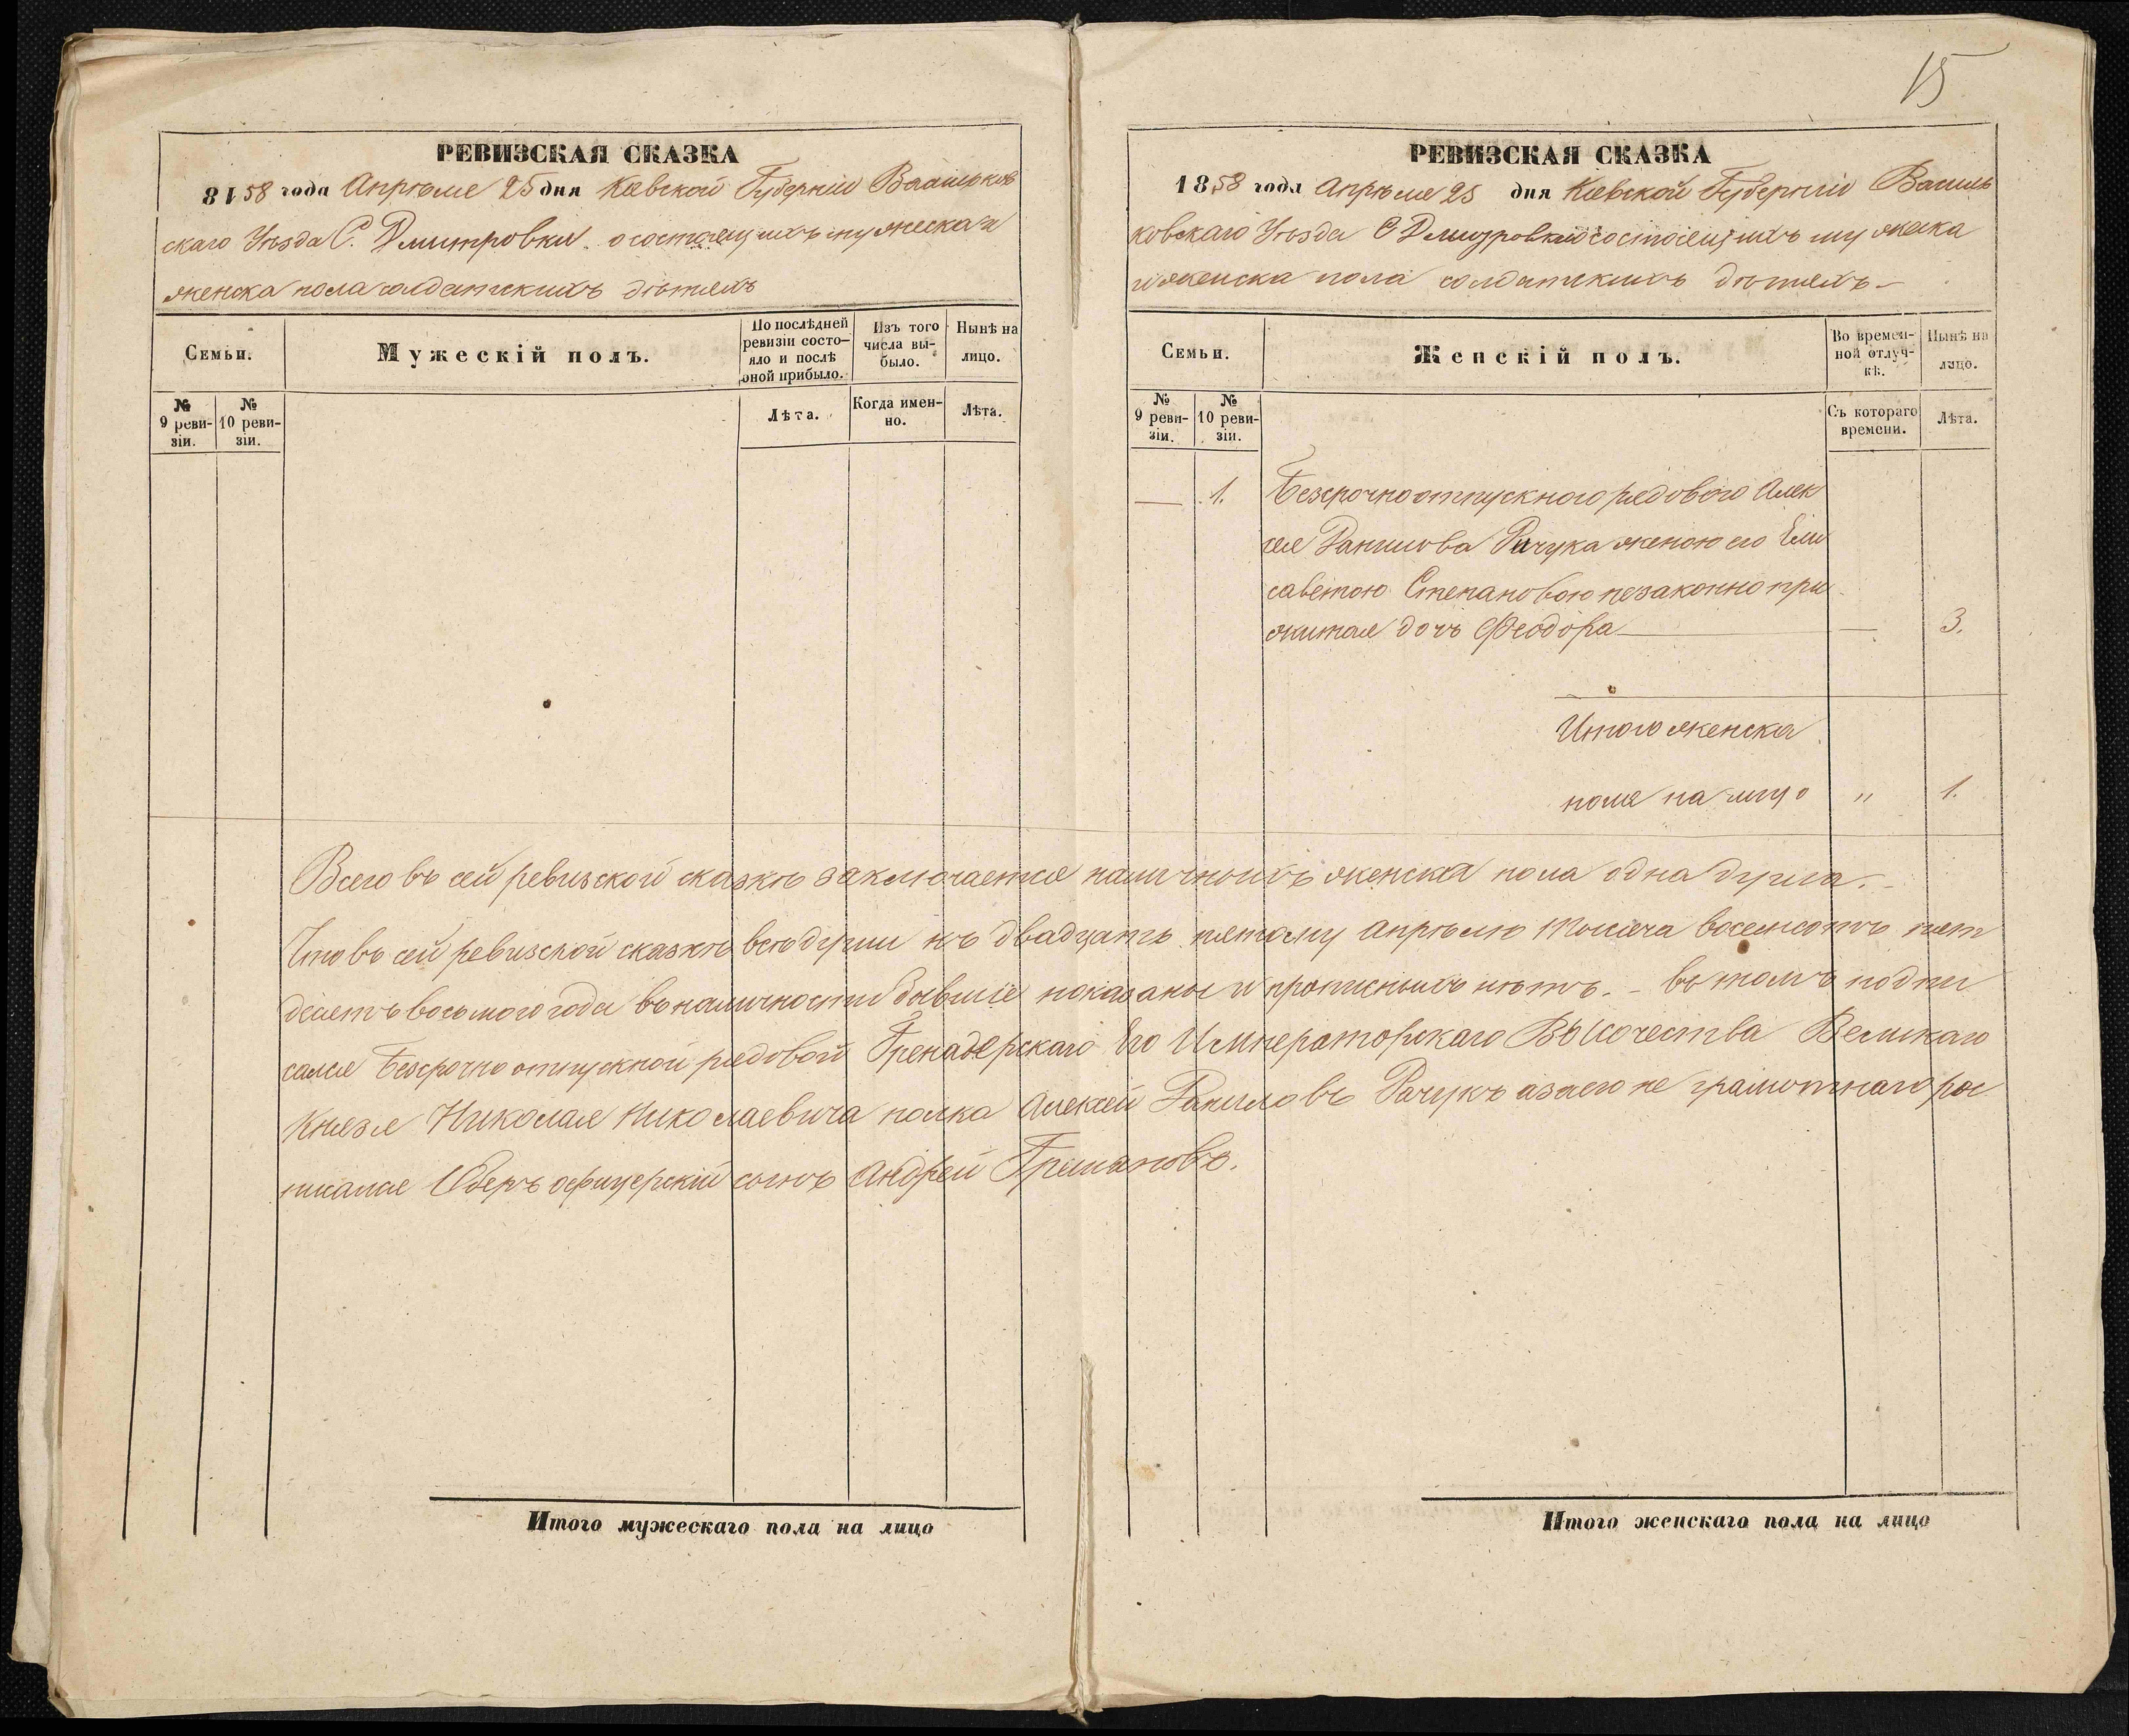 РЕВИЗСКАЯ СКАЗКА
8158 года Апреля 25 дня Кіевской Губерніи Васильков
скаго Уезда С. Дмитровки о состоящихъ мужеска и
женска пола солдатскихъ детяхъ
Семьи.
Мужескій полъ.
По послѣдней ревизіи состо-
яло и послѣ
оной прибыло.
Изъ того
числа вы-
было.
Нынѣ на
лицо.
№
9 реви-
зіи.
№
10 реви-
зіи.
Лѣта.
Когда имен-
но.
Лѣта.
Итого мужескаго пола на лицо
15
РЕВИЗСКАЯ СКАЗКА
1858 года Апреля 25 дня Кіевской Губерніи Василь
ковскаго Уезда С Дмитровки о состоящихъ мужеска
и женска пола солдатскихъ детяхъ
Семьи.
Женскій полъ.
Во времен-
ной отлуч-
кѣ.
Нынѣ на
лицо.
№
9 реви-
зіи.
№
10 реви-
зіи.
Съ котораго
времени.
Лѣта.
— 1. Безсрочноотпускного рядового Алек
сея Данилова Рачука женою его Ели
саветою Степановою незаконно при
житая дочь Феодора — — 3.
Итого женска
пола на лицо " 1.
Всего въ сей ревизской сказкѣ заключается наличныхъ женска пола одна душа.
Что въ сей ревизской сказкѣ всѣ души къ двадцать пятому Апрѣлю Тысяча восемсотъ пят
десятъ восьмого года въ наличности бывшіе показаны и прописныхъ нѣтъ. – въ томъ подпи
сался Безсрочно отпускной рядовой Гренадерскаго Его Императорскаго Высочества Великаго
Князя Николая Николаевича полка Алексей Даниловъ Рачукъ а за его не грамотнаго рос
писался Оберъ офицерскій сынъ Андрей
Итого женскаго пола на лицо